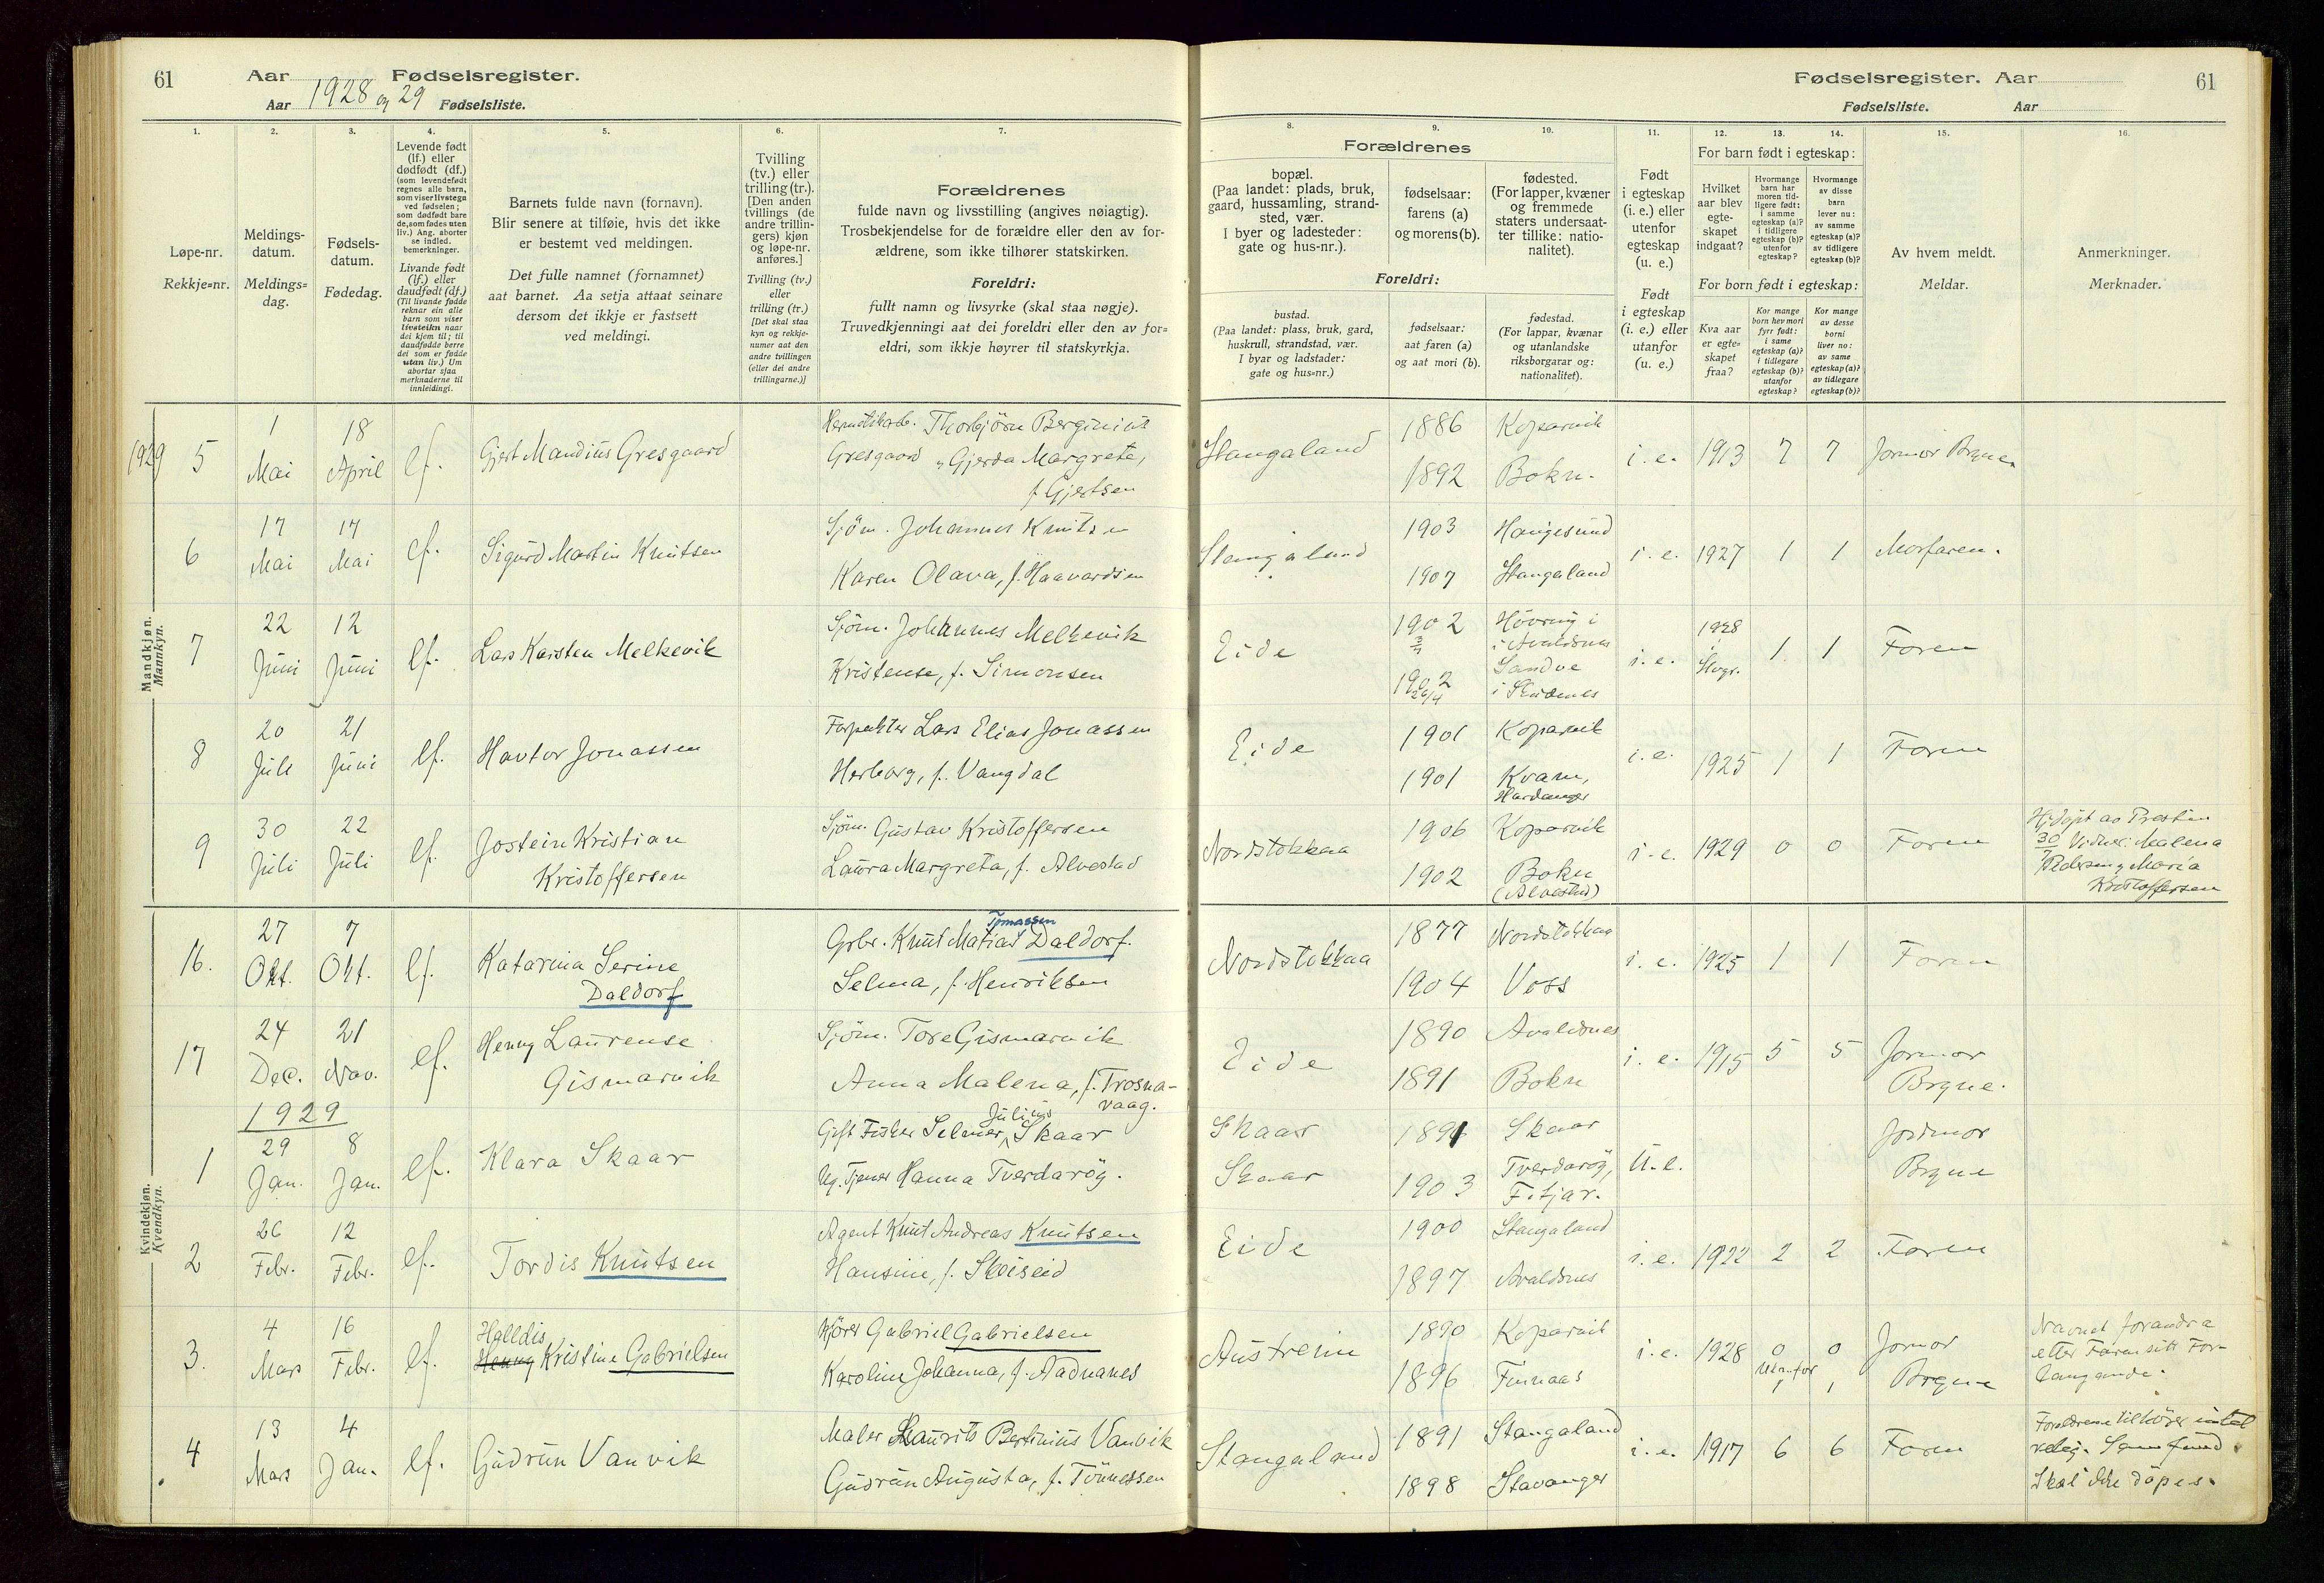 61
Aar
Fødselsregister.
Aar 1928 og 29 Fødselsliste.
Fødselsregister. Aar
61
Fødselsliste. Aar
1.
2.
3.
4.
5.
6.
7.
8.
9.
10.
11.
12.
13.
14.
15.
16.
Løpe-nr.
Rekkje=nr.
Meldings-
datum.
Meldings=
dag.
Fødsels-
datum.
Fødedag.
Levende født
(lf.) eller
dødfødt (df.)
(som levendefødt
regnes alle barn,
som viser livstegn
ved fødselen;
som dødfødt bare
de, som fødes uten
liv.) Ang. aborter
se indled.
bemerkninger.
Livande født
(lf.) eller
daudfødt (df.)
(Til livande fødde
reknar ein alle
barn som viser
livsteikn naar
dei kjem til; til
daudfødde berre
dei som er fødde
utan liv.) Um
abortar sjaa
merknaderne til
innleidingi.
Barnets fulde navn (fornavn).
Blir senere at tilføie, hvis det ikke
er bestemt ved meldingen.
Det fulle namnet (fornamnet)
aat barnet. Aa setja attaat seinare
dersom det ikkje er fastsett
ved meldingi.
Tvilling
(tv.) eller
trilling (tr.).
[Den anden
tvillings (de
andre trillin-
gers) kjøn
og løpe-nr.
anføres.]
Tvilling (tv.)
eller
trilling (tr.)
[Det skal staa
kyn og rekkje-
numer aat den
andre tvillingen
(eller dei andre
trillingarne.)]
Forældrenes
fulde navn og livsstilling (angives nøiagtig).
Trosbekjendelse for de forældre eller den av for-
ældrene, som ikke tilhører statskirken.
Foreldri:
fullt namn og livsyrke (skal staa nøgje).
Truvedkjenningi aat dei foreldri eller den av for=
eldri, som ikkje høyrer til statskyrkja.
Forældrenes
bopæl.
(Paa landet: plads, bruk,
gaard, hussamling, strand-
sted, vær.
I byer og ladesteder:
gate og hus-nr.).
fødselsaar:
farens (a)
og morens (b).
fødested.
(For lapper, kvæner
og fremmede
staters undersaat-
ter tillike: natio-
nalitet).
Foreldri:
bustad.
(Paa landet: plass, bruk, gard,
huskrull, strandstad, vær.
I byar og ladstader:
gate og hus=nr.)
fødselsaar:
aat faren (a)
og aat mori (b).
fødestad.
(For lappar, kvænar
og utanlandske
riksborgarar og:
nationalitet).
Født
i egteskap
(i. e.) eller
utenfor
egteskap
(u. e.)
Født
i egteskap
(i. e.) eller
utanfor
(u. e.)
For barn født i egteskap:
Hvilket
aar blev
egte-
skapet
indgaat?
Hvormange
barn har
moren tid-
ligere født:
i samme
egteskap (a)?
i tidligere
egteskap (b)?
utenfor
egteskap?
Hvormange
av disse
barn
lever nu:
av samme
egteskap (a)?
av tidligere
egteskap (b)?
For born født i egteskap:
Kva aar
er egte=
skapet
fraa?
Kor mange
born hev mori
fyrr født:
i same
egteskap (a)?
i tidlegare
egteskap (b)?
utanfor
egteskap?
Kor mange
av desse
borni
liver no:
av same
egteskap (a)?
av tidlegare
egteskap (b)?
Av hvem meldt.
Meldar.
Anmerkninger.
Merknader.
Mandkjøn.
Mannkyn.
1929 5 1 Mai 18 April lf. Gjert Mandius Gresgaard
Thorbjørn Berginius
Gresgaard og Gjerda Margrete,
f. Gjertsen
Stangaland 1886 Kopervik i. e. 1913 7 7 Jormor Brgne.
1892 Bokn.
6 17 Mai 17 Mai lf. Sigurd Martin Knutsen
Sjøm. Johannes Knutsen
Karen Olava, f. Haavardsen
Stangaland 1903 Haugesund i. e. 1927 1 1 Morfaren.
1907 Stangaland
7 22 Juni 12 Juni lf. Lars Karsten Melkevik
Sjøm. Johannes Melkevik
Kristense, f. Simonsen
Eide 1902 Høvring i
i Avaldsnes i. e. 1928 1 1 Faren
1902 26/4 Sandve
i Skudenes
8 20 Juli 21 Juni lf. Havtor Jonassen
Forpakter Lars Elias Jonassen
Herborg, f. Vangdal
Eide 1901 Kopervik i. e. 1925 1 1 Faren
1901 Kvam,
Hardanger
9 30 Juli 22 Juli lf. Jostein Kristian
Kristoffersen
Sjøm. Gustav Kristoffersen
Laura Margreta, f. Alvestad
Nordstokkaa 1906 Kopervik i. e. 1929 0 0 Faren
1902 Bokn
(Alvestad)
Hj.døpt av Presten
30/7 Vidner: Malena
Pedersen og Maria
Kristoffersen
Kvindekjøn.
Kvendkyn.
16. 27 Okt. 7 Okt. lf. Katarina Serine
Daldorf
Tomassen
Grbr. Knut Matias Daldorf.
Selma, f. Henriksen
Nordstokkaa 1877 Nordstokkaa i. e. 1925 1 1 Faren
1904 Voss
17 24 Dec. 21 Nov. lf. Henny Laurense
Gismarvik
Sjøm. Tore Gismarvik
Anna Malena, f. Trosna-
vaag.
Eide 1890 Avaldsnes i. e. 1915 5 5 Jormor
1891 Bokn Brgne.
1929
1 29 Jan. 8 Jan. lf. Klara Skaar
Julius
Gift Fisker Selmer Skaar
Ug. Tjener Hanna Tverdarøg.
Skaar 1891 Skaar U. e. Jordmor
Skaar 1903 Tverdarøg, Brgne
Fitjar.
2 26 Febr. 12 Febr. lf. Tordis Knutsen
Agent Knut Andreas Knutsen
Hansine, f. Skeiseid
Eide 1900 Stangaland i. e. 1922 2 2 Faren
1897 Avaldsnes
3. 4 Mars 16 Febr. lf. Halldis
Henny Kristine Gabrielsen
Kjører Gabriel Gabrielsen
Karoline Johanna, f. Aadnanes
Austreim 1890 Kopervik i. e. 1928 0 0 Jormor
1896 Finnaas Utenfor 1 1 Brgne
Navnet forandra
etter Faren sitt For-
langande.
4 13 Mars 4 Jan. lf. Gudrun Vanvik
Maler Laurits Bertinius Vanvik
Gudrun Augusta, f. Tønnessen
Stangaland 1891 Stangaland i. e. 1917 6 6 Faren
1898 Stavanger
Forældrene tilhører intet
relig. Samfund.
Skal ikke døpes.